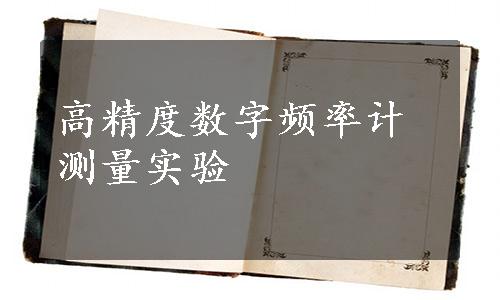 高精度数字频率计
测量实验